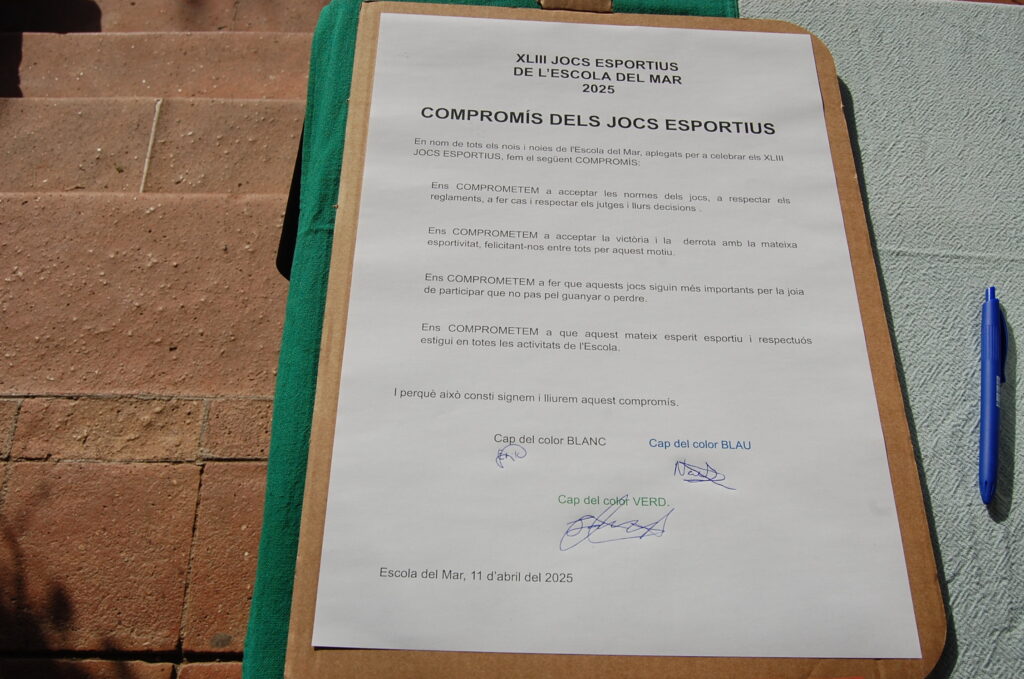 XLIII JOCS ESPORTIUS
DE L'ESCOLA DEL MAR
2025
COMPROMÍS DELS JOCS ESPORTIUS
En nom de tots els nois i noies de l'Escola del Mar, aplegats per a celebrar els XLIII
JOCS ESPORTIUS, fem el següent COMPROMÍS:
Ens COMPROMETEM a acceptar les normes dels jocs, a respectar els
reglaments, a fer cas i respectar els jutges i llurs decisions .
Ens COMPROMETEM a acceptar la victòria i la derrota amb la mateixa
esportivitat, felicitant-nos entre tots per aquest motiu.
Ens COMPROMETEM a fer que aquests jocs siguin més importants per la joia
de participar que no pas pel guanyar o perdre.
Ens COMPROMETEM a que aquest mateix esperit esportiu i respectuós
estigui en totes les activitats de l'Escola.
I perquè això consti signem i lliurem aquest compromís.
Cap del color BLANC Cap del color BLAU
Cap del color VERD.
Escola del Mar, 11 d'abril del 2025